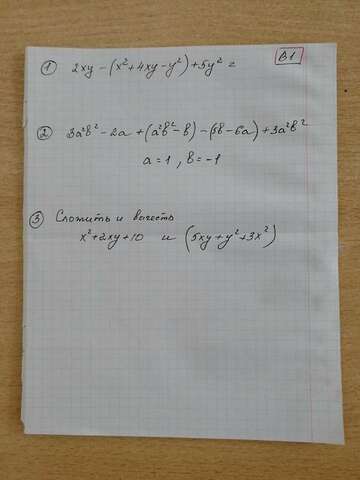 В1
① 2xy - (x² + 4xy - y²) + 5y² =
② 3a²b² - 2a + (a²b² - b) - (5b - 6a) + 3a²b²
a = 1, b = -1
③ Сложить и вычесть
x² + 2xy + 10 и (5xy + y² + 3x²)